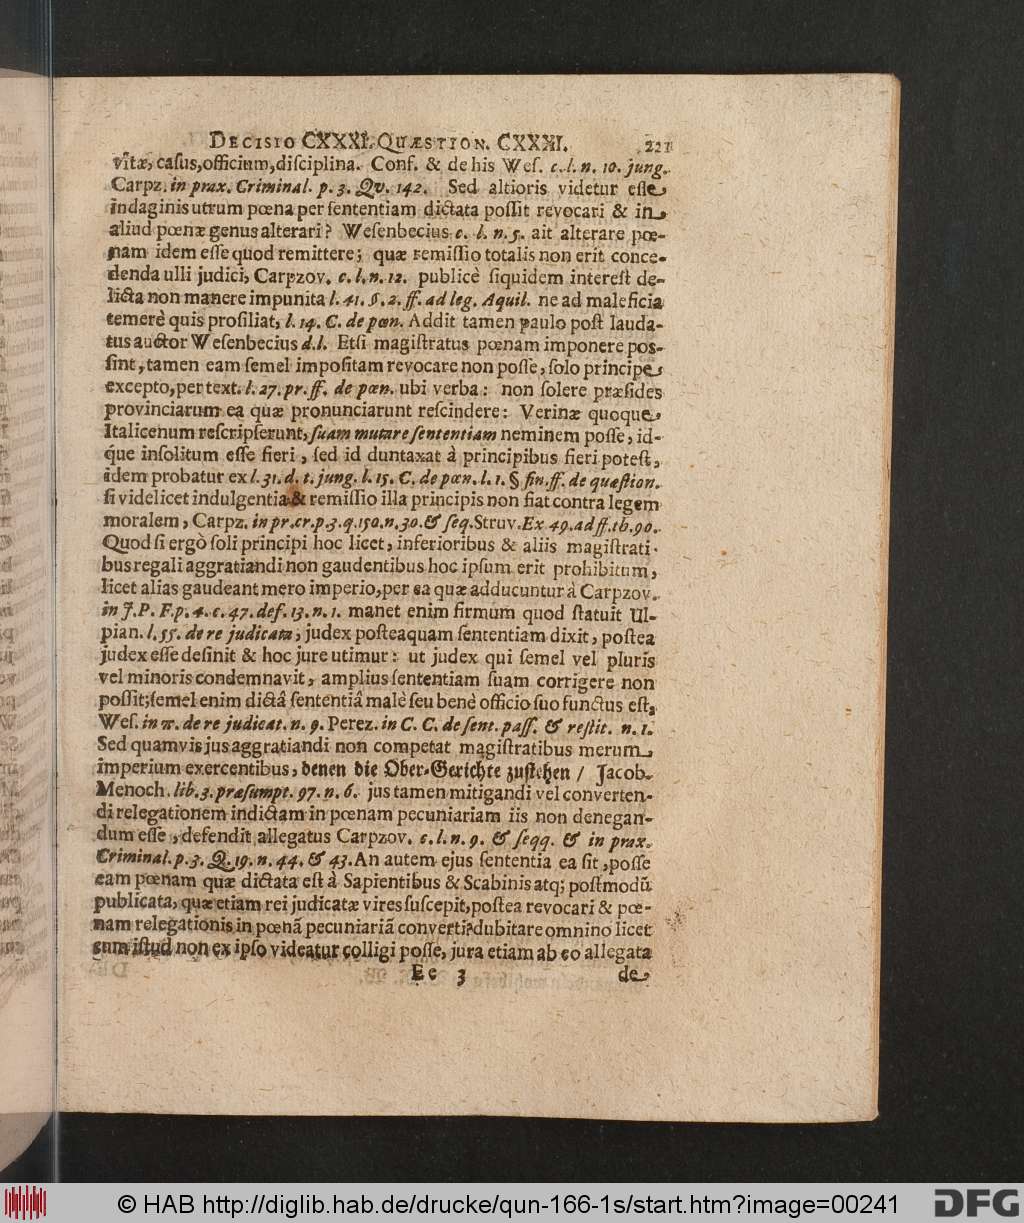 DECISIO CXXXI. QUÆSTION. CXXXI. 221
vitæ, casus, officium, disciplina. Conf. & de his Wes. c. l. n. 10. jung.
Carpz. in prax. Criminal. p. 3. Qv. 142. Sed altioris videtur esse
indaginis utrum pœna per sententiam dictata possit revocari & in
aliud pœnæ genus alterari? Wesenbecius c. l. n. 5. ait alterare pœ-
nam idem esse quod remittere; quæ remissio totalis non erit conce-
denda ulli judici, Carpzov. c. l. n. 12. publicè siquidem interest de-
licta non manere impunita l. 41. §. 2. ff. ad leg. Aquil. ne ad maleficia
temerè quis prosiliat, l. 14. C. de pœn. Addit tamen paulo post lauda-
tus auctor Wesenbecius d. l. Etsi magistratus pœnam imponere pos-
sint, tamen eam semel impositam revocare non posse, solo principe
excepto, per text. l. 27. pr. ff. de pœn. ubi verba: non solere præsides
provinciarum ea quæ pronunciarunt rescindere: Verinæ quoque
Italicenum rescripserunt, suam mutare sententiam neminem posse, id-
q́ue insolitum esse fieri, sed id duntaxat à principibus fieri potest,
idem probatur ex l. 31. d. t. jung. l. 15. C. de pœn. l. 1. § fin. ff. de quæstion.
si videlicet indulgentia & remissio illa principis non fiat contra legem
moralem, Carpz. in pr. cr. p. 3. q. 150. n. 30. & seq. Struv. Ex 49. ad ff. th. 90.
Quod si ergò soli principi hoc licet, inferioribus & aliis magistrati-
bus regali aggratiandi non gaudentibus hoc ipsum erit prohibitum,
licet alias gaudeant mero imperio, per ea quæ adducuntur à Carpzov.
in J. P. F. p. 4. c. 47. def. 13. n. 1. manet enim firmum quod statuit Ul-
pian. l. 55. de re judicata, judex posteaquam sententiam dixit, postea
judex esse desinit & hoc jure utimur: ut judex qui semel vel pluris
vel minoris condemnavit, amplius sententiam suam corrigere non
possit; semel enim dictâ sententiâ malè seu benè officio suo functus est,
Wes. in π. de re judicat. n. 9. Perez. in C. C. de sent. pass. & restit. n. 1.
Sed quamvis jus aggratiandi non competat magistratibus merum
imperium exercentibus, denen die Ober-Gerichte zustehen / Jacob.
Menoch. lib. 3. præsumpt. 97. n. 6. jus tamen mitigandi vel converten-
di relegationem indictam in pœnam pecuniariam iis non denegan-
dum esse, defendit allegatus Carpzov. c. l. n. 9. & seqq. & in prax.
Criminal. p. 3. Q. 19. n. 44. & 43. An autem ejus sententia ea sit, posse
eam pœnam quæ dictata est à Sapientibus & Scabinis atq; postmodũ
publicata, quæ etiam rei judicatæ vires suscepit, postea revocari & pœ-
nam relegationis in pœnã pecuniariã converti? dubitare omnino licet
cum istud non ex ipso videatur colligi posse, jura etiam ab eo allegata
Ee 3 de
© HAB http://diglib.hab.de/drucke/qun-166-1s/start.htm?image=00241 DFG